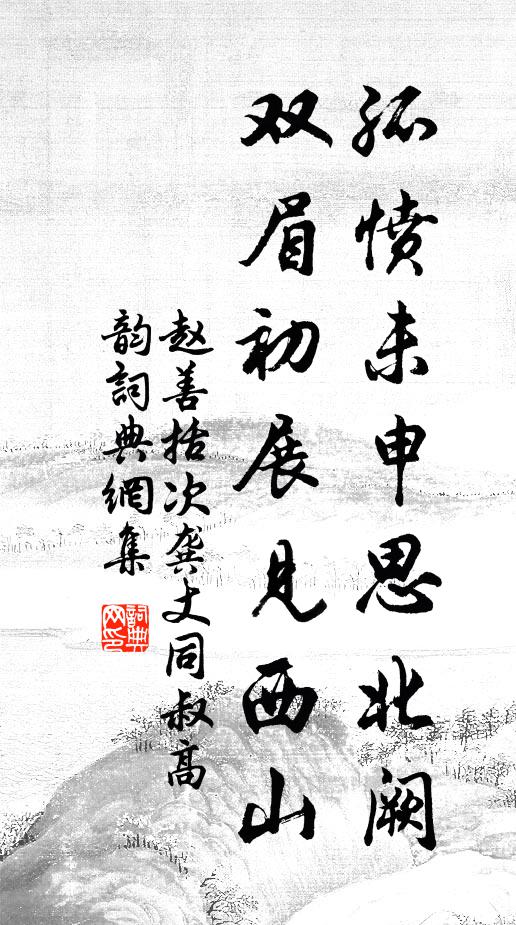 孤愤未申思北阙
双眉初展见西山
赵善括次龚丈同叔高
韵词典网集
詞典
网印